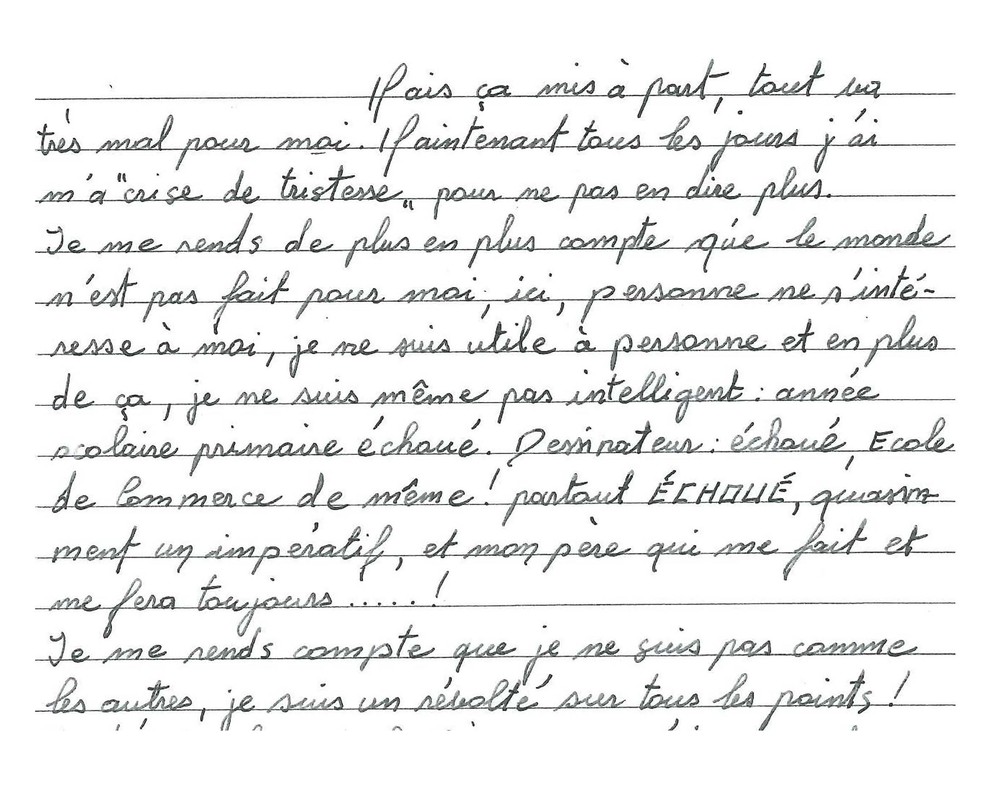 Mais ça mis à part, tout va
très mal pour moi. Maintenant tous les jours j'ai
m'a "crise de tristesse" pour ne pas en dire plus.
Je me rends de plus en plus compte que le monde
n'est pas fait pour moi, ici, personne ne s'inté-
resse à moi, je ne suis utile à personne et en plus
de ça, je ne suis même pas intelligent : année
scolaire primaire échoué. Dessinateur : échoué, Ecole
de Commerce de même ! partout ÉCHOUÉ, quasim-
ment un impératif, et mon père qui me fait et
me fera toujours ..... !
Je me rends compte que je ne suis pas comme
les autres, je suis un révolté sur tous les points !